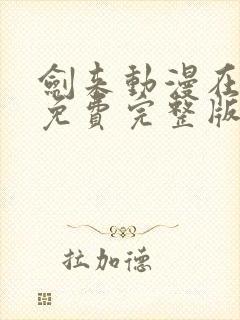 劍来動漫在
免費完整版
拉加德